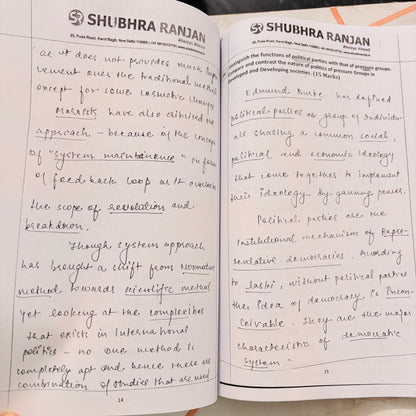 SHUBHRA RANJAN
Always Ahead
as it does not provides much Impro
vement over the traditional method
except for some cosmetic changes
Marxists have also critised the
approach - because of its concept
of "system maintainence" in form
of feedback loop as it overlooks
the scope of revolution and
breakdown.
Though system approach
has brought a shift from Normative
method towards scientific method
yet looking at the complexities
that exists in International
politics - no one method is
completely apt and hence there are
combination of studies that are used
14
SHUBHRA RANJAN
Always Ahead
Distinguish the functions of political parties with that of pressure groups.
Compare and contrast the nature of politics of pressure Groups in
Developed and Developing societies. (15 Marks)
Edmund Burke has defined
political parties as group of Individu-
als sharing a common social,
political and economic Ideology
that come together to implement
their ideology by gaining power.
Political parties are the
Institutional mechanism of Repre-
sentative democracies. According
to Laski, without political parties
the idea of democracy is Incon-
ceivable. They are the major
characteristic of democratic
system.
15